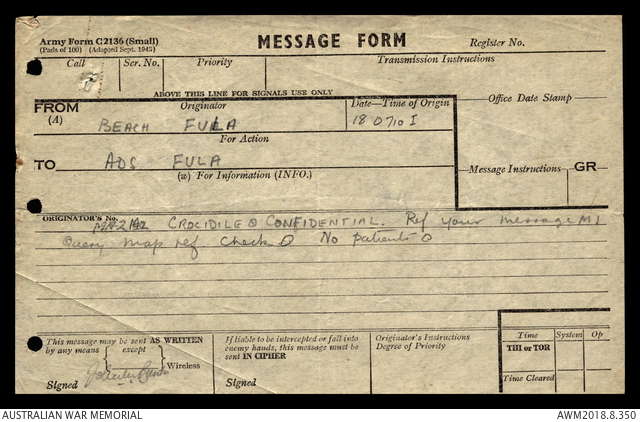 Army Form C2136 (Small)
(Pads of 100) (Adapted Sept. 1943)
MESSAGE FORM
Register No.
Call Ser. No. Priority Transmission Instructions
ABOVE THIS LINE FOR SIGNALS USE ONLY
FROM (A) Originator Date—Time of Origin Office Date Stamp
BEACH FULA 18 0710 I
For Action
TO ADS FULA
(W) For Information (INFO.) Message Instructions GR
ORIGINATOR'S No.
CROCIDILE CONFIDENTIAL. Ref your message M1
Query map ref. check No patients
This message may be sent AS WRITTEN
by any means except
Wireless
Signed
If liable to be intercepted or fall into
enemy hands, this message must be
sent IN CIPHER
Signed
Originator's Instructions
Degree of Priority
Time System Op
THI or TOR
Time Cleared
AUSTRALIAN WAR MEMORIAL AWM2018.8.350